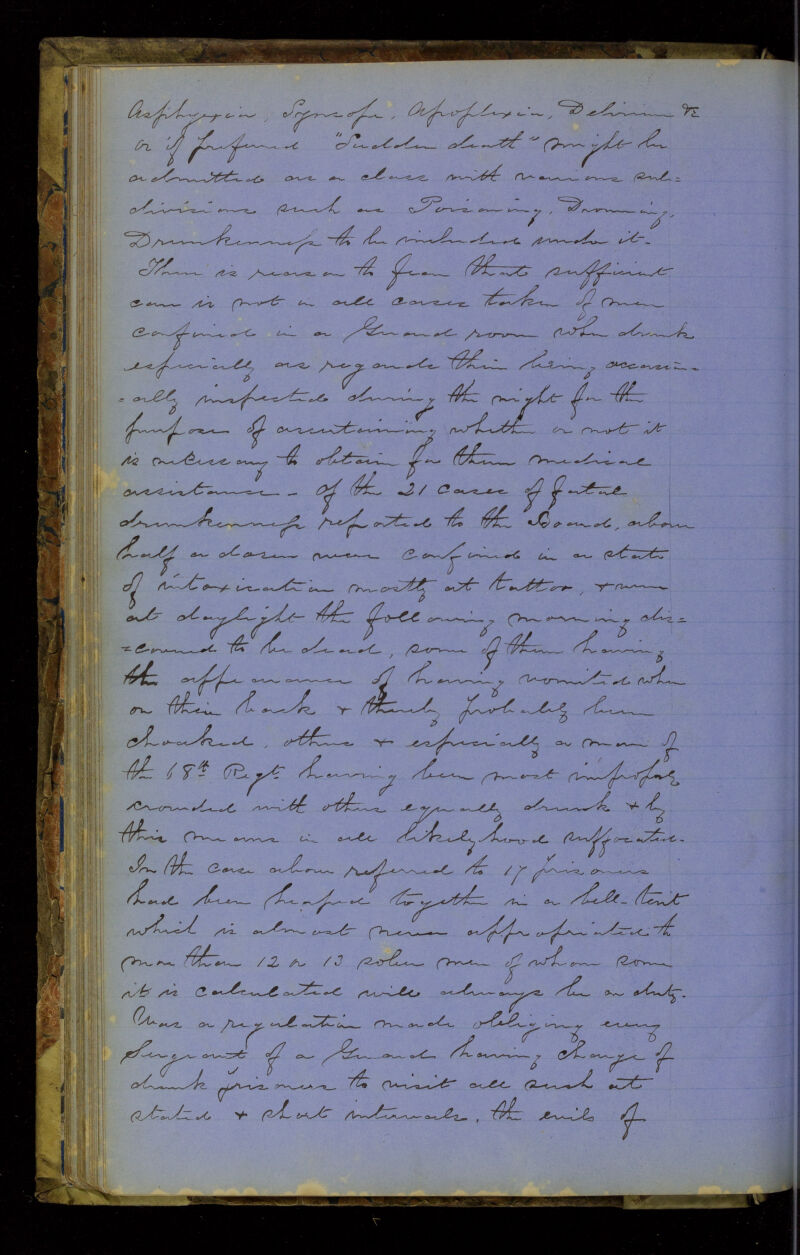 Asphyxia, Syncope, Apoplexia, Delirium &c
or if preferred "Sudden death" might be
admitted as a class with various sub=
divisions such as Poisoning, Drowning,
Drunkenness to be included under it -
There is reason to fear that sufficient
care is not in all cases taken of men
confined in a Guard room when drunk
especially as regards their being occasion=
=ally inspected during the night for the
purpose of ascertaining whether or not it
is necessary to obtain for them medical
assistance - of the 21 cases of fatal
drunkenness reported to the Board, above
half a dozen were confined in a state
of intoxication mostly at tattoo, & were
at daylight the following morning dis=
=covered to be dead, some of them having
the appearance of having vomited when
on their back & thereby probably been
choaked, others & especially a man of
the 68th Regt. having been most improperly
crowded with others equally drunk & by
this means in all likelyhood suffocated.
In the case above referred to 17 prisoners
had been heaped together in a bell-tent
which is almost never appropriated to
more than 12 or 13 sober men of whom some
it is calculated will always be on duty.
Was a regulation made obliging every
Sergeant of a Guard having charge of
drunk prisoners to visit all such at
stated & short intervals, the evils of